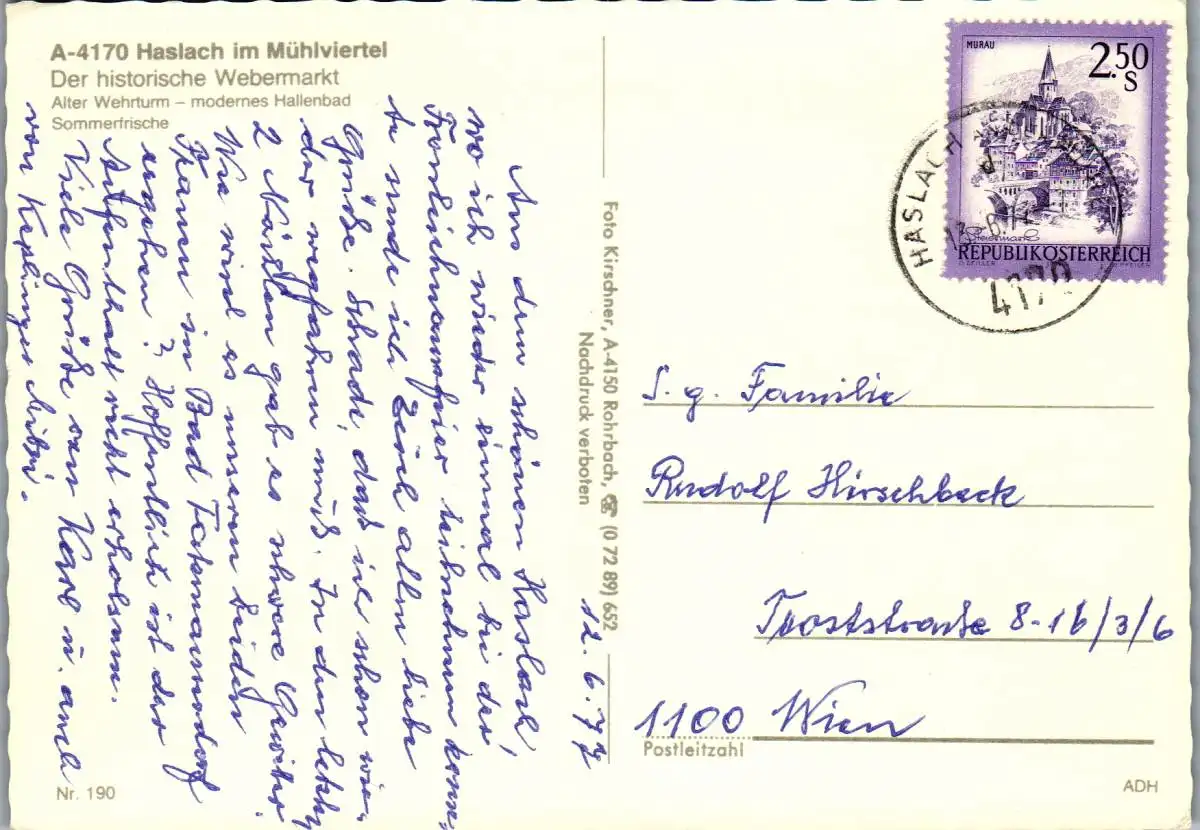 A-4170 Haslach im Mühlviertel
Der historische Webermarkt
Alter Wehrturm – modernes Hallenbad
Sommerfrische
12. 6. 77
Aus dem schönen Haslach,
wo ich wieder einmal bei der
Fronleichnamsfeier teilnehmen konn-
te sende ich Euch allen liebe
Grüße. Schade, daß ich schon wie-
der wegfahren muß. In den letzten
2 Nächten gab es schwere Gewitter.
Wie wird es unseren beiden
Frauen in Bad Tatzmannsdorf
ergehen? Hoffentlich ist der
Aufenthalt recht erholsam.
Viele Grüße von Karl u. auch
von Keplinger
Foto Kirschner, A-4150 Rohrbach, ☎ (0 72 89) 652
Nachdruck verboten
MURAU
2.50
S
Steiermark
REPUBLIK ÖSTERREICH
HASLACH
4170
S. g. Familie
Rudolf Hirschbeck
Troststraße 8-16/3/6
1100 Wien
Postleitzahl
Nr. 190
ADH